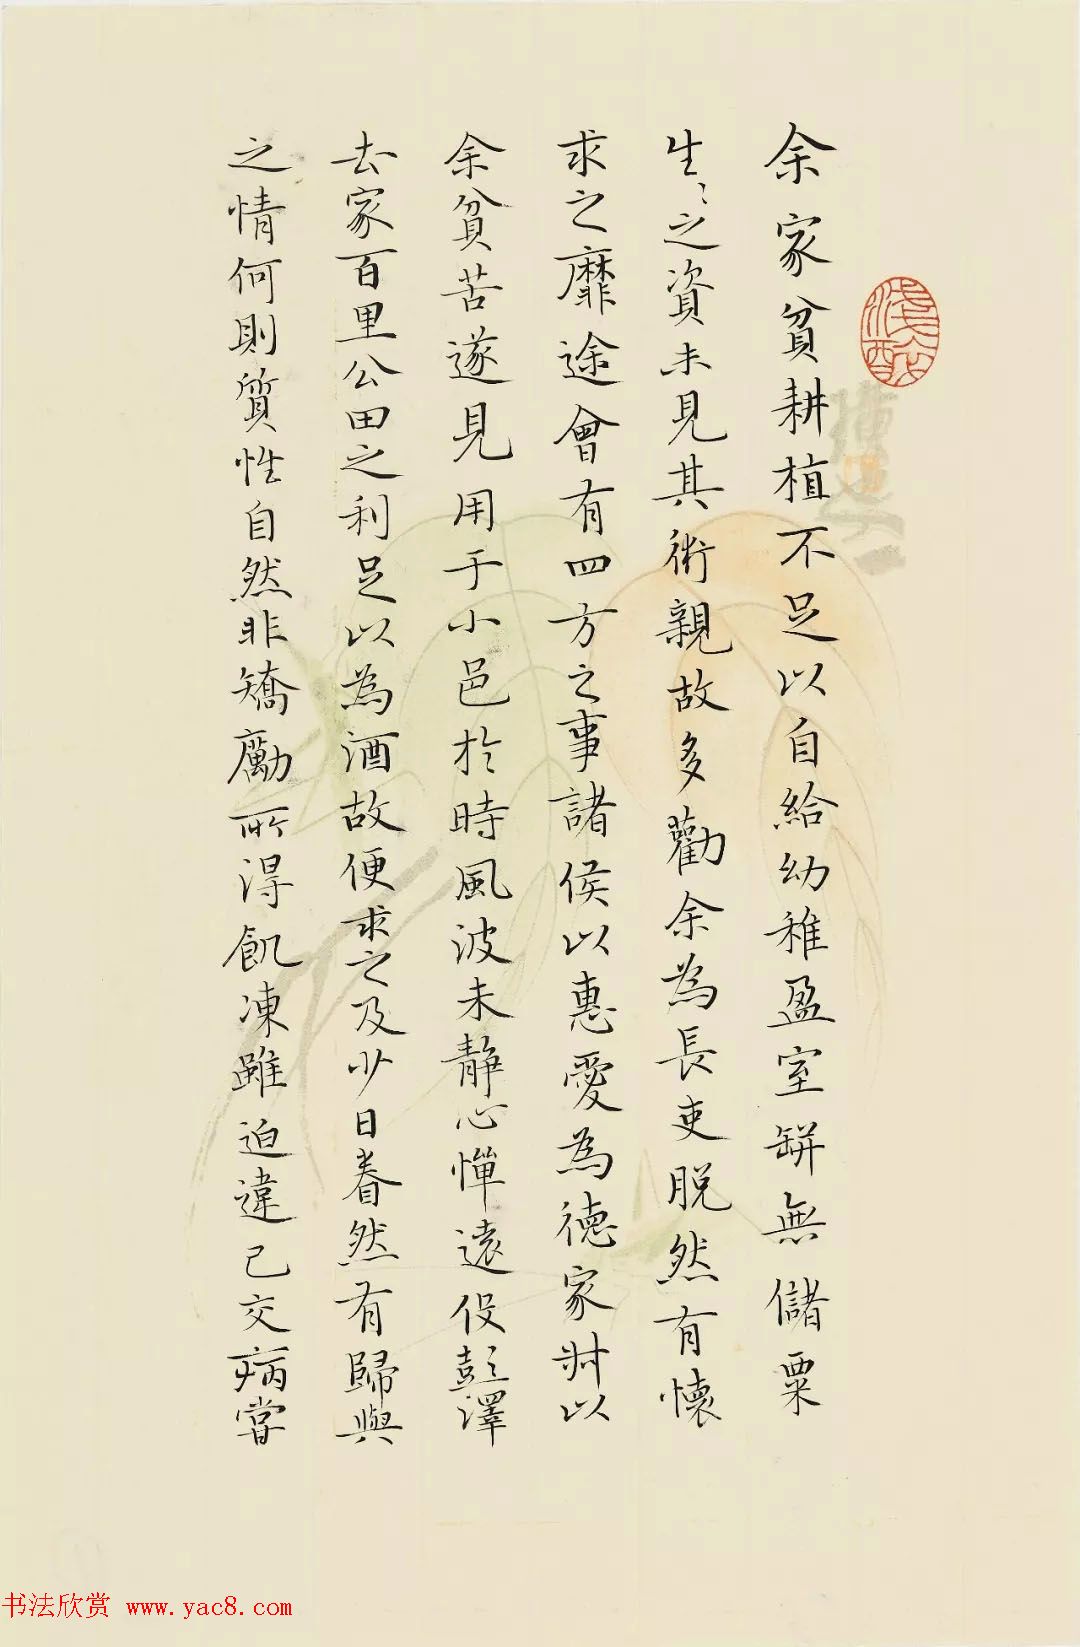 余家貧耕植不足以自給幼稚盈室缾無儲粟
生〻之資未見其術親故多勸余為長吏脱然有懷
求之靡途會有四方之事諸侯以惠愛為德家叔以
余貧苦遂見用于小邑於時風波未静心憚遠役彭澤
去家百里公田之利足以為酒故便求之及少日眷然有歸與
之情何則質性自然非矯勵所得飢凍雖迫違己交病嘗
书法欣赏 www.yac8.com